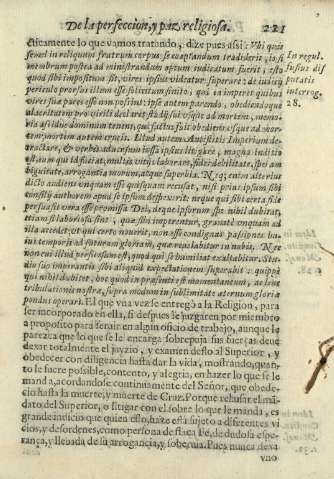 De la perfeccion, y paz religiosa. 221
cticamente lo que vamos tratando, dize pues assi: Vbi quis
semel in religiosum fratrum corpus se cooptandum tradiderit, is, si
membrum postea ad ministrandum aptum iudicatum fuerit; &
quod sibi impositum sit, vires ipsius videatur superare: de iudicij
periculo prorsus illum esse solicitum sinito, qui ea imperet quibus
vires sua pares esse non possint: ipse autem parendo, obediendoque
alacritatem pro virili declaret sta
ria
tem; mortem autem crucis. Illud autem
tractare, & verbis aduersus iussa ipsius
est, cum qui id faciat, multis vitijs laborare, fidei debilitate, spei am
biguitate, arrogantia morum, atque superbia. Neque enim alterius
dicto audiens vnquam esse quisquam recusat, nisi prius ipsum sibi
consilij authorem apud se ipsum despexerit: neque qui sibi certa fide
persuasit vera esse promissa Dei, deque ipsorum spe nihil dubitat,
etiam si laboriosa sint, quae sibi imperentur, grauate vnquam ad
illa accedet: vt qui certo nouerit, non esse condignas passiones huius
temporis ad futuram gloriam, quae reuelabitur in nobis. Nec
non cui illud persuasum est, quod qui se humiliat exaltabitur. Stu
dium suo imperantis sibi aliquid expectationem superabit: quippe
qui nihil dubitet; hoc quod in praesenti est momentaneum, & leue
tribulationis nostrae, supra modum in sublimitate aeternum gloriae
pondus operari. El que vna vez se entregò a la Religion, para
ser incorporado en ella, si despues le juzgaren por miembro
a proposito para seruir en algun oficio de trabajo, aunque le
parezca que lo que se le encarga sobrepuja sus fuerças deue
dexar totalmente el juyzio, y examen desto al Superior, y
obedecer con diligencia hasta dar la vida, mostrando, quan-
to le fuere possible, contento, y alegria, en hazer lo que se le
manda, acordandose continuamente del Señor, que obede-
cio hasta la muerte, y muerte de Cruz. Porque rehusar el man
dato del Superior, o litigar con el sobre lo que le manda, es
grande indicio que quien esso, haze está sujeto a diferentes vi
cios, y desordenes, como persona de flaca Fè, de dudosa espe-
rança, y lleuada de su arrogancia, y soberuia. Pues nunca dexa
vno
In regul.
fusius dis
putatis
interrog.
28.